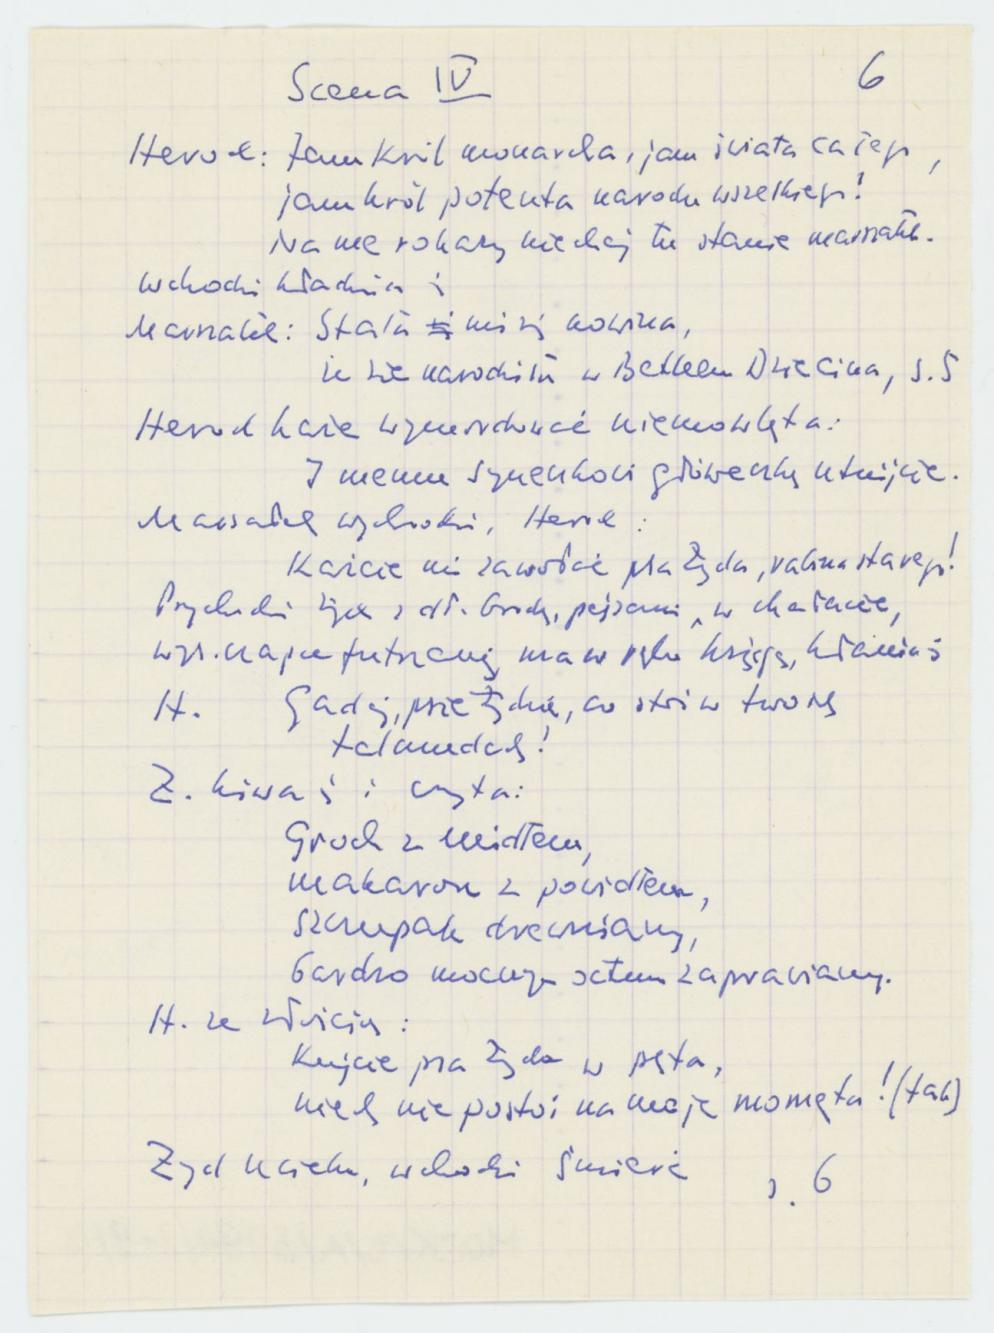 Scena IV 6
Herod: Jam król monarcha, jam świata całego,
jam król potenta narodu wszelkiego!
Na me rozkazy niechaj tu stanie marszałek.
Wchodzi kłania się
Marszałek: Stała się mi się nowina,
że się narodziła w Betleem Dziecina, s. 5
Herod każe wymordować niemowlęta:
I memu syneczkowi główeczkę utnijcie.
Marszałek wychodzi, Herod:
Każcie mi zawołać psa Żyda, rabina starego!
Przychodzi Żyd z dł. brodą, pejsami, w chałacie,
wys. czapie futrzanej, ma w ręku księgę, kłania się
H. Gadaj, psie Żydzie, co stoi w twoich
talmudach!
Ż. kiwa się i czyta:
Groch z midłem,
makaron z powidłem,
szczupak drewniany,
bardzo mocnym octem zaprawiany.
H. ze złością:
Kujcie psa Żyda w pęta,
niech nie postoi na moje momęta! (tak)
Żyd ucieka, wchodzi Śmierć s. 6